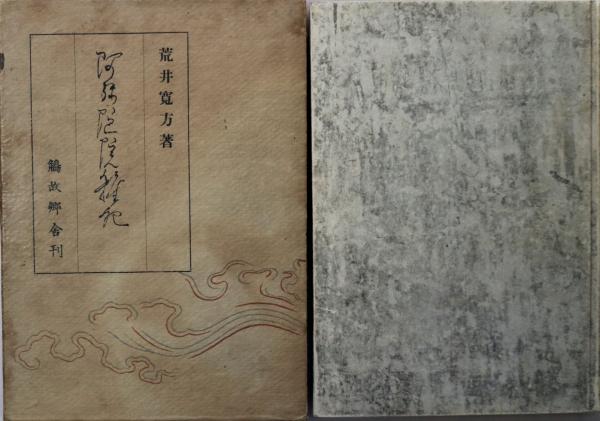 荒井寛方著
阿弥陀院雑記
鵤故郷舎刊